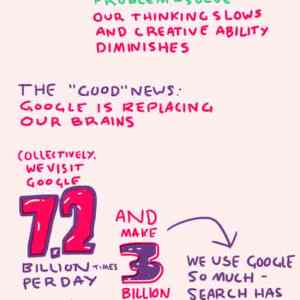 PROBLEM-SOLVE
OUR THINKING SLOWS
AND CREATIVE ABILITY
DIMINISHES
THE "GOOD" NEWS:
GOOGLE IS REPLACING
OUR BRAINS
COLLECTIVELY,
WE VISIT
GOOGLE
7.2
BILLION TIMES
PER DAY
AND
MAKE
3
BILLION
WE USE GOOGLE
SO MUCH -
SEARCH HAS